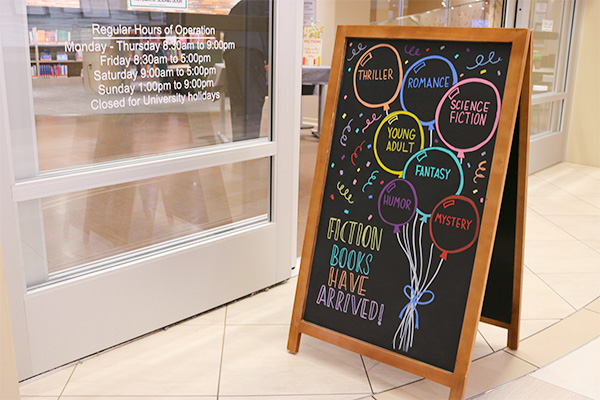 Regular Hours of Operation
Monday - Thursday 8:30am to 9:00pm
Friday 8:30am to 5:00pm
Saturday 9:00am to 5:00pm
Sunday 1:00pm to 9:00pm
Closed for University holidays
THRILLER
ROMANCE
SCIENCE
FICTION
YOUNG
ADULT
FANTASY
HUMOR
MYSTERY
FICTION
BOOKS
HAVE
ARRIVED!